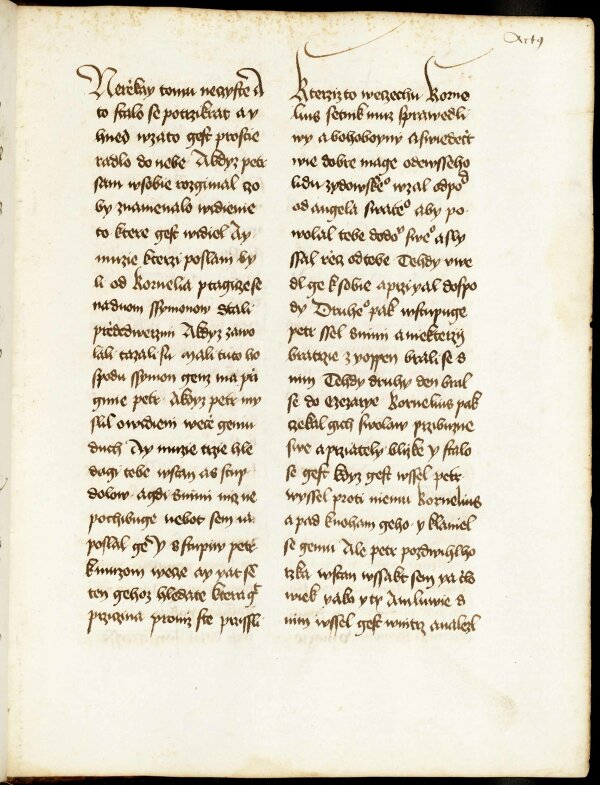 Actꝯ
Nerzkay tomu neczyste A
to stalo se potrzikrat a y
hned wzato gest prostie
radlo do nebe Akdyz petr
sam wsobie rozgimal czo
by znamenalo widienie
to ktere gest widiel Ay
muzie kterzi poslani by
li od Kornelia ptagicze se
naduom ssymonow stali
przededwerzmi Akdyz zawo
lali tazali su mali tuto ho
spodu ssymon genz ma pri
gmie petr Akdyz petr my
slil owidieni wecze gemu
duch Ay muzie trzie hle
dagi tebe wstan a s stup
dolow a gdi s nimi nicz ne
pochibuge nebot sem ia
poslal ge Y s stupiw petr
k muzom wecze ay yat se
ten gehoz hledate ktera gt
przyczina proniz ste przissli
Kterzizto weczechu Korne
lius setnik muz sprawedli
wy a bohoboyny a swiedect
wie dobre mage odewsseho
lidu zydowskeº wzal odpod
od angela swateº aby po
wolal tebe dodoū sweº a sly
ssal rzecz od tebe Tehdy uwe
dl ge k sobie a przyyal dospo
dy Druheº pak wstupuge
petr ssel s nimi a niekterzy
bratrzie z yoppen brali se s
nim Tehdy druhy den bral
se do czezarye Kornelius pak
czekal gich swolaw przibuzne
swe a przately blizke y stalo
se gest kdyz gest wssel petr
wyssel proti niemu Kornelius
a pad k noham geho y klaniel
se gemu Ale petr pozdwihl ho
rzka wstan wssakt sem ya czlo
wiek yako y ty A mluwie s
nim wssel gest wnitrz a nalezl